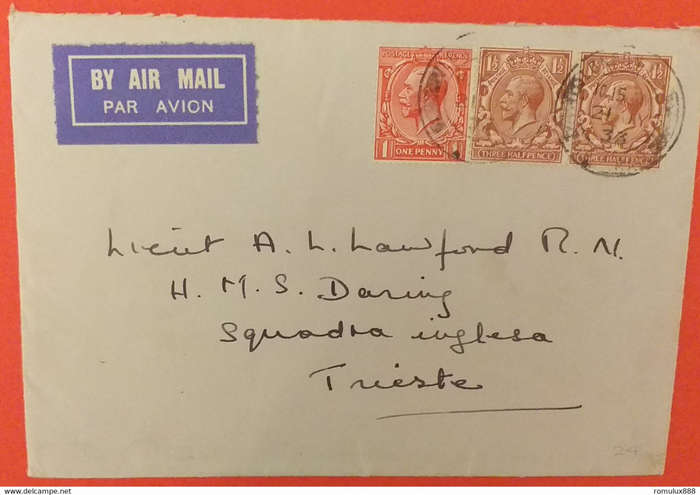 BY AIR MAIL
PAR AVION
POSTAGE REVENUE
1 ONE PENNY 1
1½ 1½
THREE HALFPENCE
1½ 1½
THREE HALFPENCE
15
21
34
Lieut A. L. Lawford R. N.
H. M. S. Daring
Squadra inglesa
Trieste
24
www.delcampe.net
romulux888